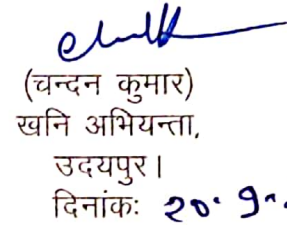 (चन्दन कुमार)
खनि अभियन्ता,
उदयपुर।
दिनांकः २०.